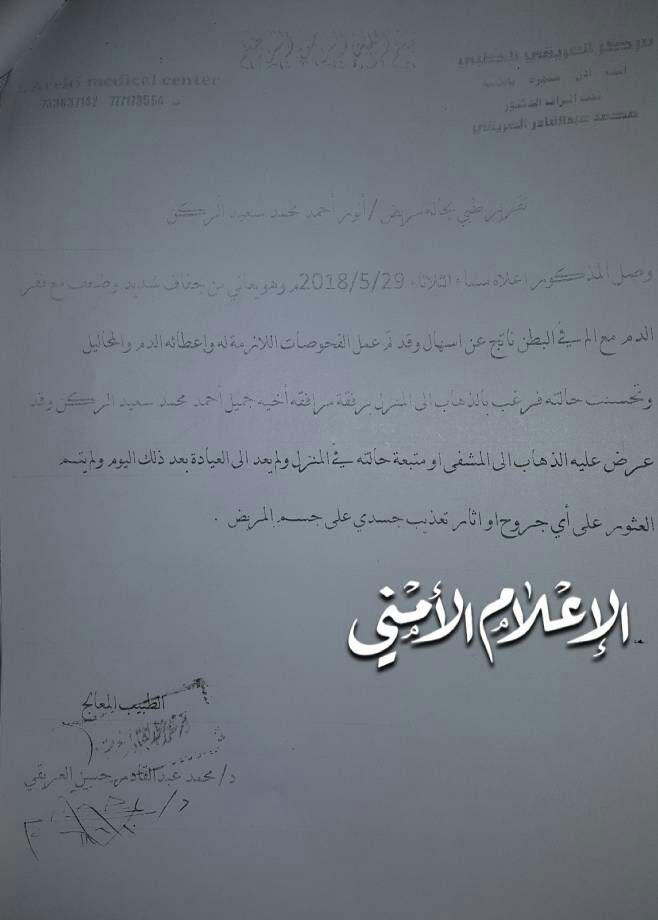 مركز العريقي الطبي
L Areki medical center
محمد عبدالقادر العريقي
تقرير طبي بحالة مريض / أنور أحمد محمد سعيد الركن
وصل المذكور اعلاه مساء الثلاثاء 2018/5/29م وهو يعاني من جفاف شديد وضعف مع فقر
الدم مع الم في البطن ناتج عن اسهال وقد تم عمل الفحوصات اللازمة له واعطائه الدم والمحاليل
وتحسنت حالته فرغب بالذهاب الى المنزل برفقة مرافقه أخيه جميل أحمد محمد سعيد الركن وقد
عرض عليه الذهاب الى المشفى او متبعة حالته في المنزل ولم يعد الى العيادة بعد ذلك اليوم ولم يتم
العثور على أي جروح او اثار تعذيب جسدي على جسم المريض .
الإعلام الأمني
الطبيب المعالج
د/ محمد عبدالقادر حسين العريقي